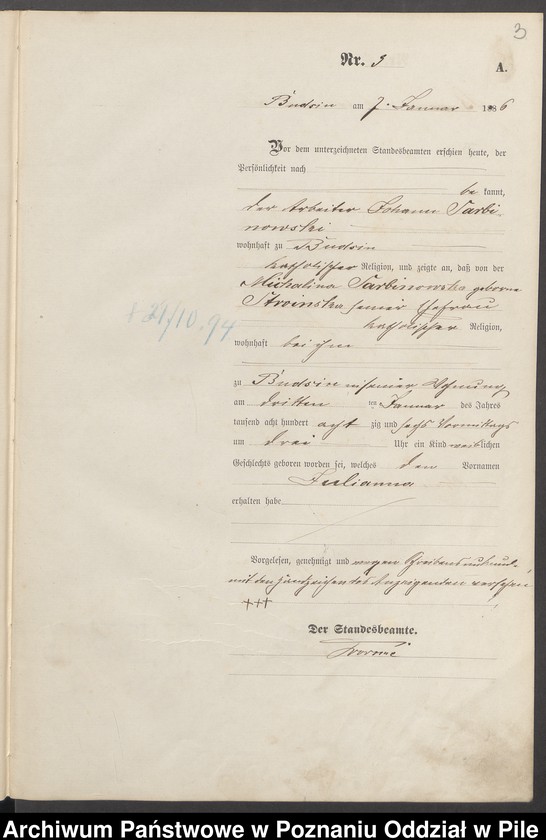 3
Nr. 3
A.
Budsin am 7. Januar 1886
Vor dem unterzeichneten Standesbeamten erschien heute, der
Persönlichkeit nach
be kannt,
der Arbeiter Johann Tarbi-
nowski
wohnhaft zu Budsin
katholischer Religion, und zeigte an, daß von der
Michalina Tarbinowska geborne
Stroinska seiner Ehefrau
katholischer Religion,
+ 21/10. 94
wohnhaft bei ihm
zu Budsin in seiner Wohnung
am dritten ten Januar des Jahres
tausend acht hundert acht zig und sechs Vormittags
um drei Uhr ein Kind weiblichen
Geschlechts geboren worden sei, welches den Vornamen
Julianna
erhalten habe
Vorgelesen, genehmigt und wegen Schreibensunkunde
mit den Handzeichen des Anzeigenden versehen
+++
Der Standesbeamte.
Archiwum Państwowe w Poznaniu Oddział w Pile